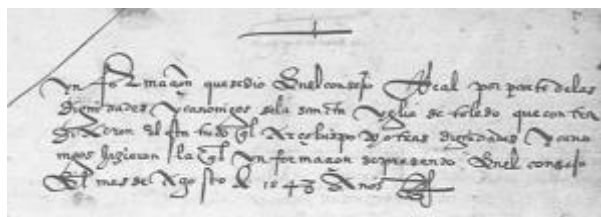 ynformaçion que se dio En el consejo Real por parte de las
dignidades y canonigos de la sancta yglesia de toledo que contra
dixeron el estatuto q̄l Arçobispo y otras dignidades y cano
nigos hizieron / la q̄l ynformaçion se presento En el consejo
El mes de Agosto de 1548 Años